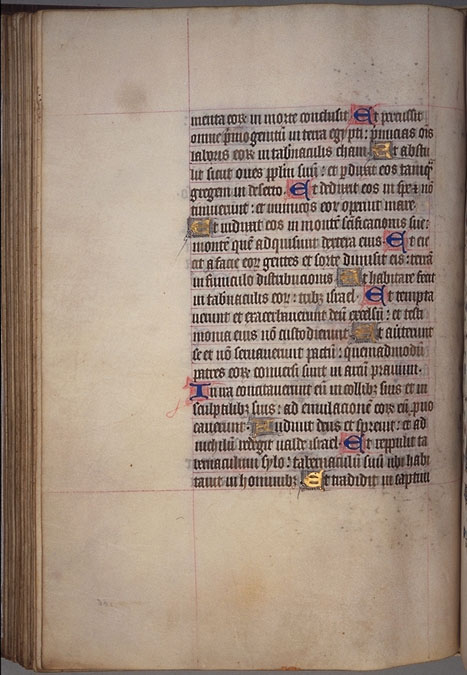 menta eorꝝ in morte conclusit Et percussit
omne p̄mogenitū in terra egypti : p̄micias oīs
laboris eorꝝ in tab̄naculis cham Et abstu
lit sicut oues pp̄lm suū : et ꝑduxit eos tamq̄
gregem in deserto. Et deduxit eos in spe ⁊ nō
timuerunt : et inimicos eorꝝ operuit mare.
Et induxit eos in montē sc̄ificacionis sue :
montē quē adquisiuit dextera eius. Et eie
cit a facie eorꝝ gentes et sorte diuisit eis : terrā
in funiculo distribucionis Et habitare fecit
in tab̄naculis eorꝝ : tribꝫ israel. Et tempta
uerunt et exacerbauerunt deū excelsū : et testi
monia eius nō custodierunt Et auerterunt
se et nō seruauerunt pactū : quemadmodū
patres eorꝝ conuersi sunt in arcū prauum.
In ira concitauerunt eū in collibꝫ suis et in
sculptilibꝫ suis : ad emulacionē eorꝝ eū ꝓuo
cauerunt. Audiuit deus et spreuit : et ad
nichilū redegit ualde israel. Et reppulit ta
bernaculum sylo : tabernaculū suū ubi habi
tauit in hominibꝫ. Et tradidit in captiui